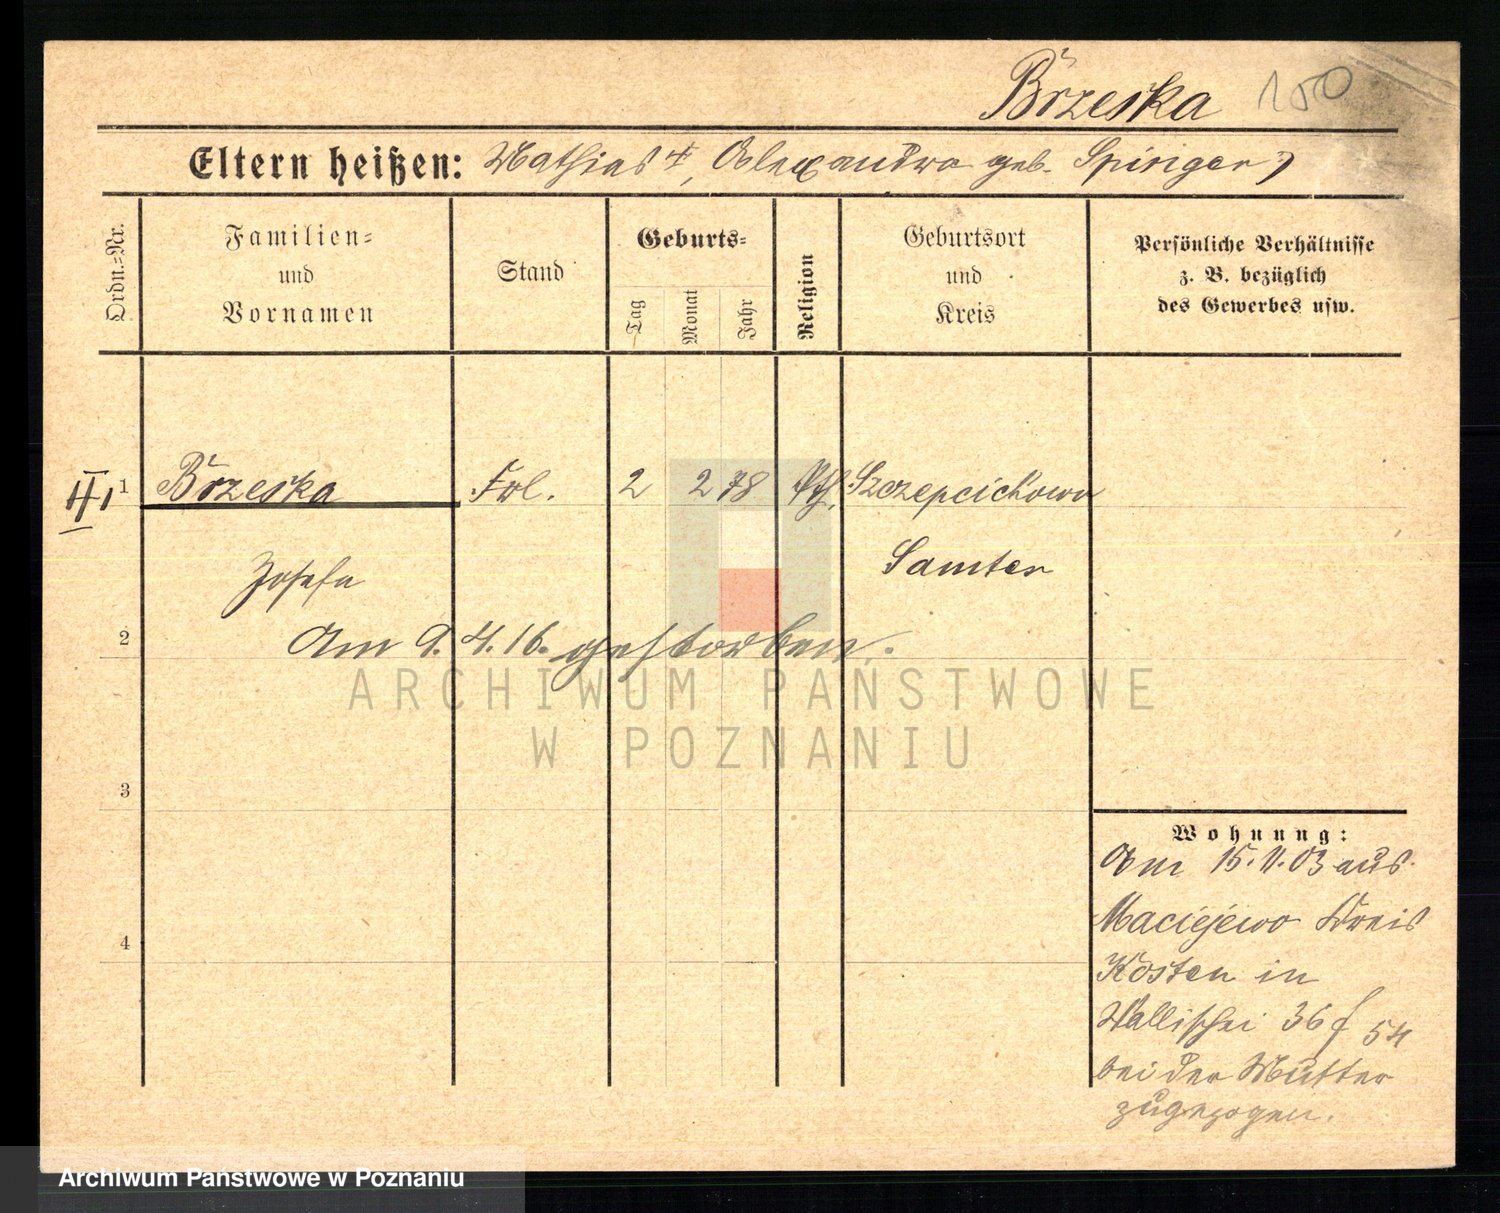 Brzeska 150
Eltern heißen: Mathias †, Alexandra geb. Spinger)
Ordn.=Nr.
Familien=
und
Vornamen
Stand
Geburts=
Tag
Monat
Jahr
Religion
Geburtsort
und
Kreis
Persönliche Verhältnisse
z. B. bezüglich
des Gewerbes usw.
1 Brzeska Frl. 2 2 78 kth. Szczepcichowo
Josefa Samter
2 Am 9. 4. 16. gestorben.
3
4
Wohnung:
Am 15.11.03 aus
Maciejewo Kreis
Kosten in
Wallischei 36 f 54
bei der Mutter
zugezogen.
ARCHIWUM PAŃSTWOWE
W POZNANIU
Archiwum Państwowe w Poznaniu